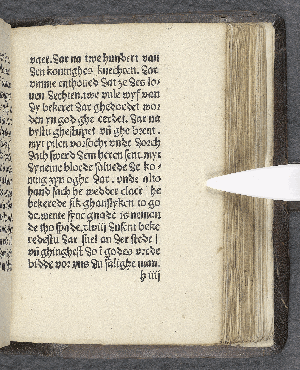 waer. Dar na twe hundert van
den koninghes knechten. Dar
vmme entboued Dat ze des lo-
uen Dechten. twe vule wyf van
Dy bekeret Dar ghedoedet wor
den yn god ghe eerdet. Dar na
bystu ghestupet vñ ghe brent.
myt pilen vorsocht vnde Dorch
Dach swerd Dem heren sent. myt
Dyneme bloede saluede de ko
ning zyn oghe Dar. vnde alto
hand sach he wedder claer he
bekerede sik ghanslyken to go
de. wente syne gnade is nemen
de tho spade. xlviij Dusent beke
redestu Dar snel an der stede
vñ ghinghest Do i godes vrede
bidde vor vns Du salighe man.
h iiij